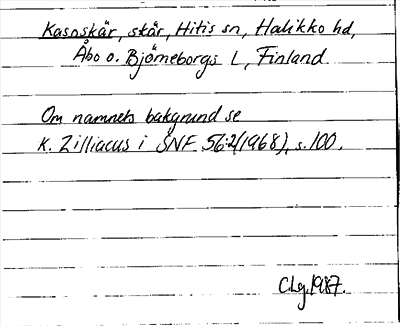 Kasaskär, skär, Hitis sn, Halikko hd,
Åbo o. Björneborgs L, Finland
Om namnets bakgrund se
K. Zilliacus i SNF 56:2(1968), s. 100.
CLg. 1987.